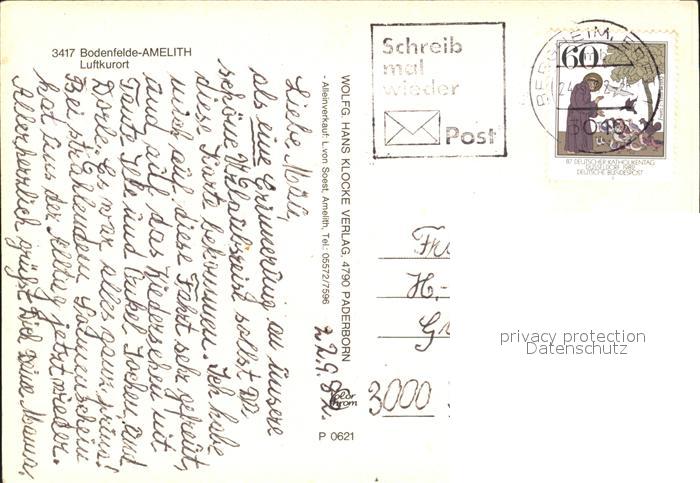 3417 Bodenfelde-AMELITH
Luftkurort
Liebe
als eine Erinnerung an unsere
schöne Urlaubszeit sollst Du
diese Karte bekommen. Ich habe
mich auf diese Fahrt sehr gefreut,
und auf das Wiedersehen mit
Tante und Onkel Jochen und
Dorle. Es war alles ganz prima!
Bei strahlendem Sonnenschein
hat uns der Alltag jetzt wieder.
Allerherzlich grüßt Dich Deine Mama.
22.9.82.
WOLFG. HANS KLOCKE VERLAG, 4790 PADERBORN
- Alleinverkauf: L. von Soest, Amelith, Tel.: 05572/7596
color
chrom
P 0621
Schreib
mal
wieder
Post
BERGHEIM, ERFT
5010
60
87. DEUTSCHER KATHOLIKENTAG
DÜSSELDORF 1982
DEUTSCHE BUNDESPOST
Fr
H.-
G
3000
privacy protection
Datenschutz